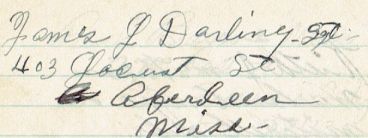 James J Darling - Sgt.
403 Locust St
Aberdeen
Miss.